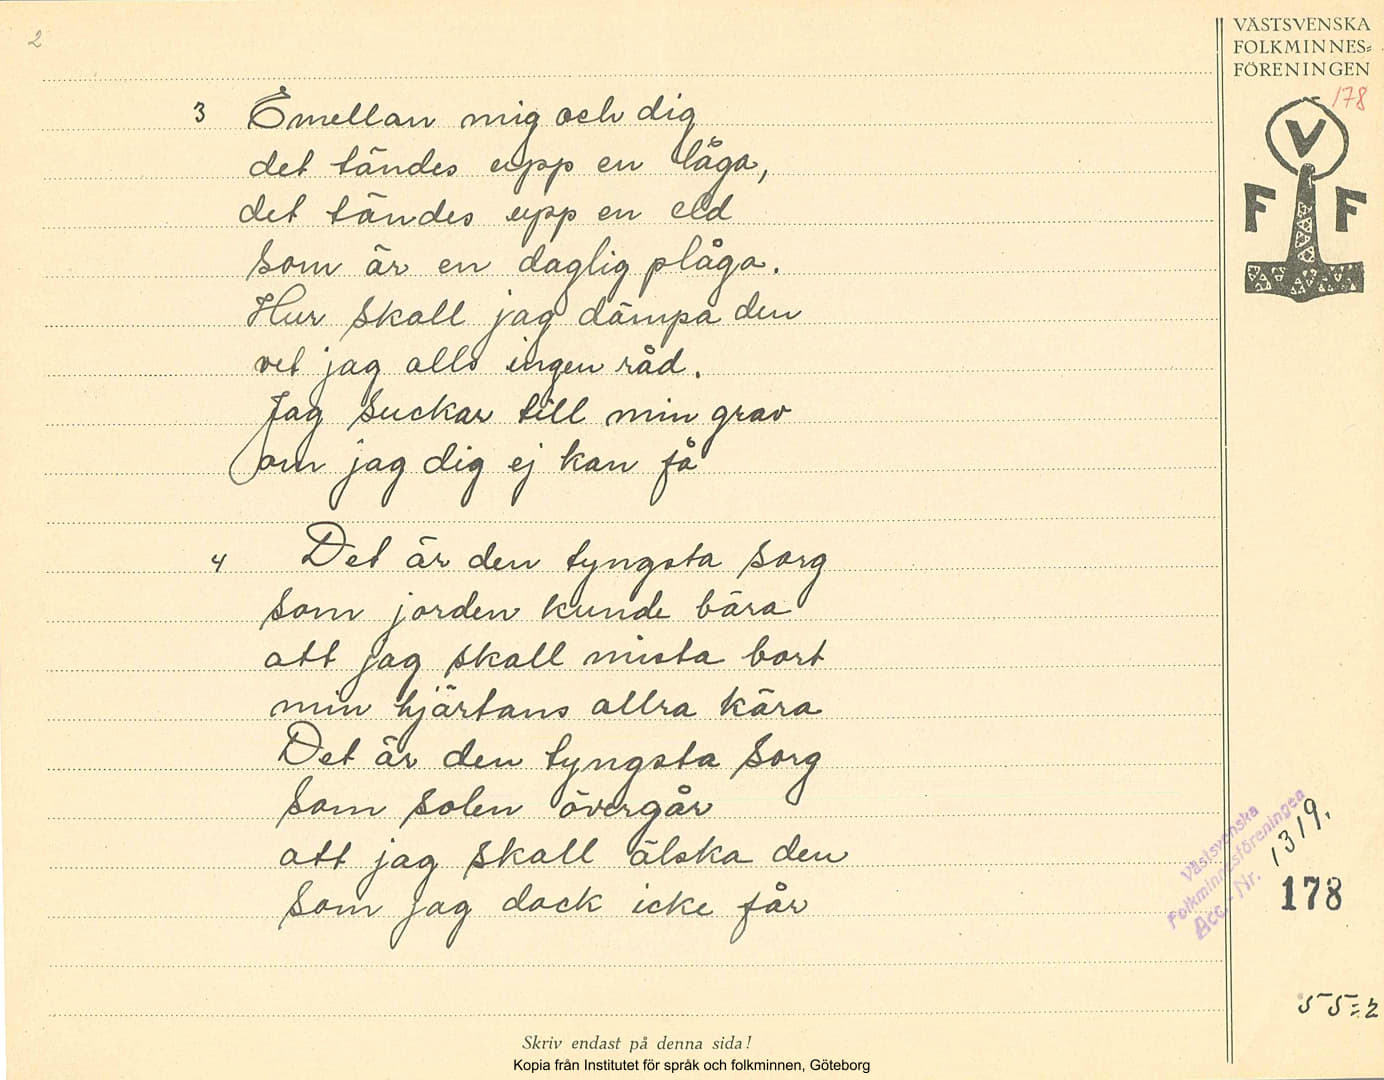 2
VÄSTSVENSKA
FOLKMINNES=
FÖRENINGEN
178
V
F F
3 Emellan mig och dig
det tändes upp en låga,
det tändes upp en eld
som är en daglig plåga.
Hur skall jag dämpa den
vet jag alls ingen råd.
Jag suckar till min grav
om jag dig ej kan få
4 Det är den tyngsta sorg
som jorden kunde bära
att jag skall mista bort
min hjärtans allra kära
Det är den tyngsta sorg
som solen övergår
att jag skall älska den
som jag dock icke får
Västsvenska
Folkminnesföreningen
Acc.-Nr. 1319.
178
55:2
Skriv endast på denna sida!
Kopia från Institutet för språk och folkminnen, Göteborg